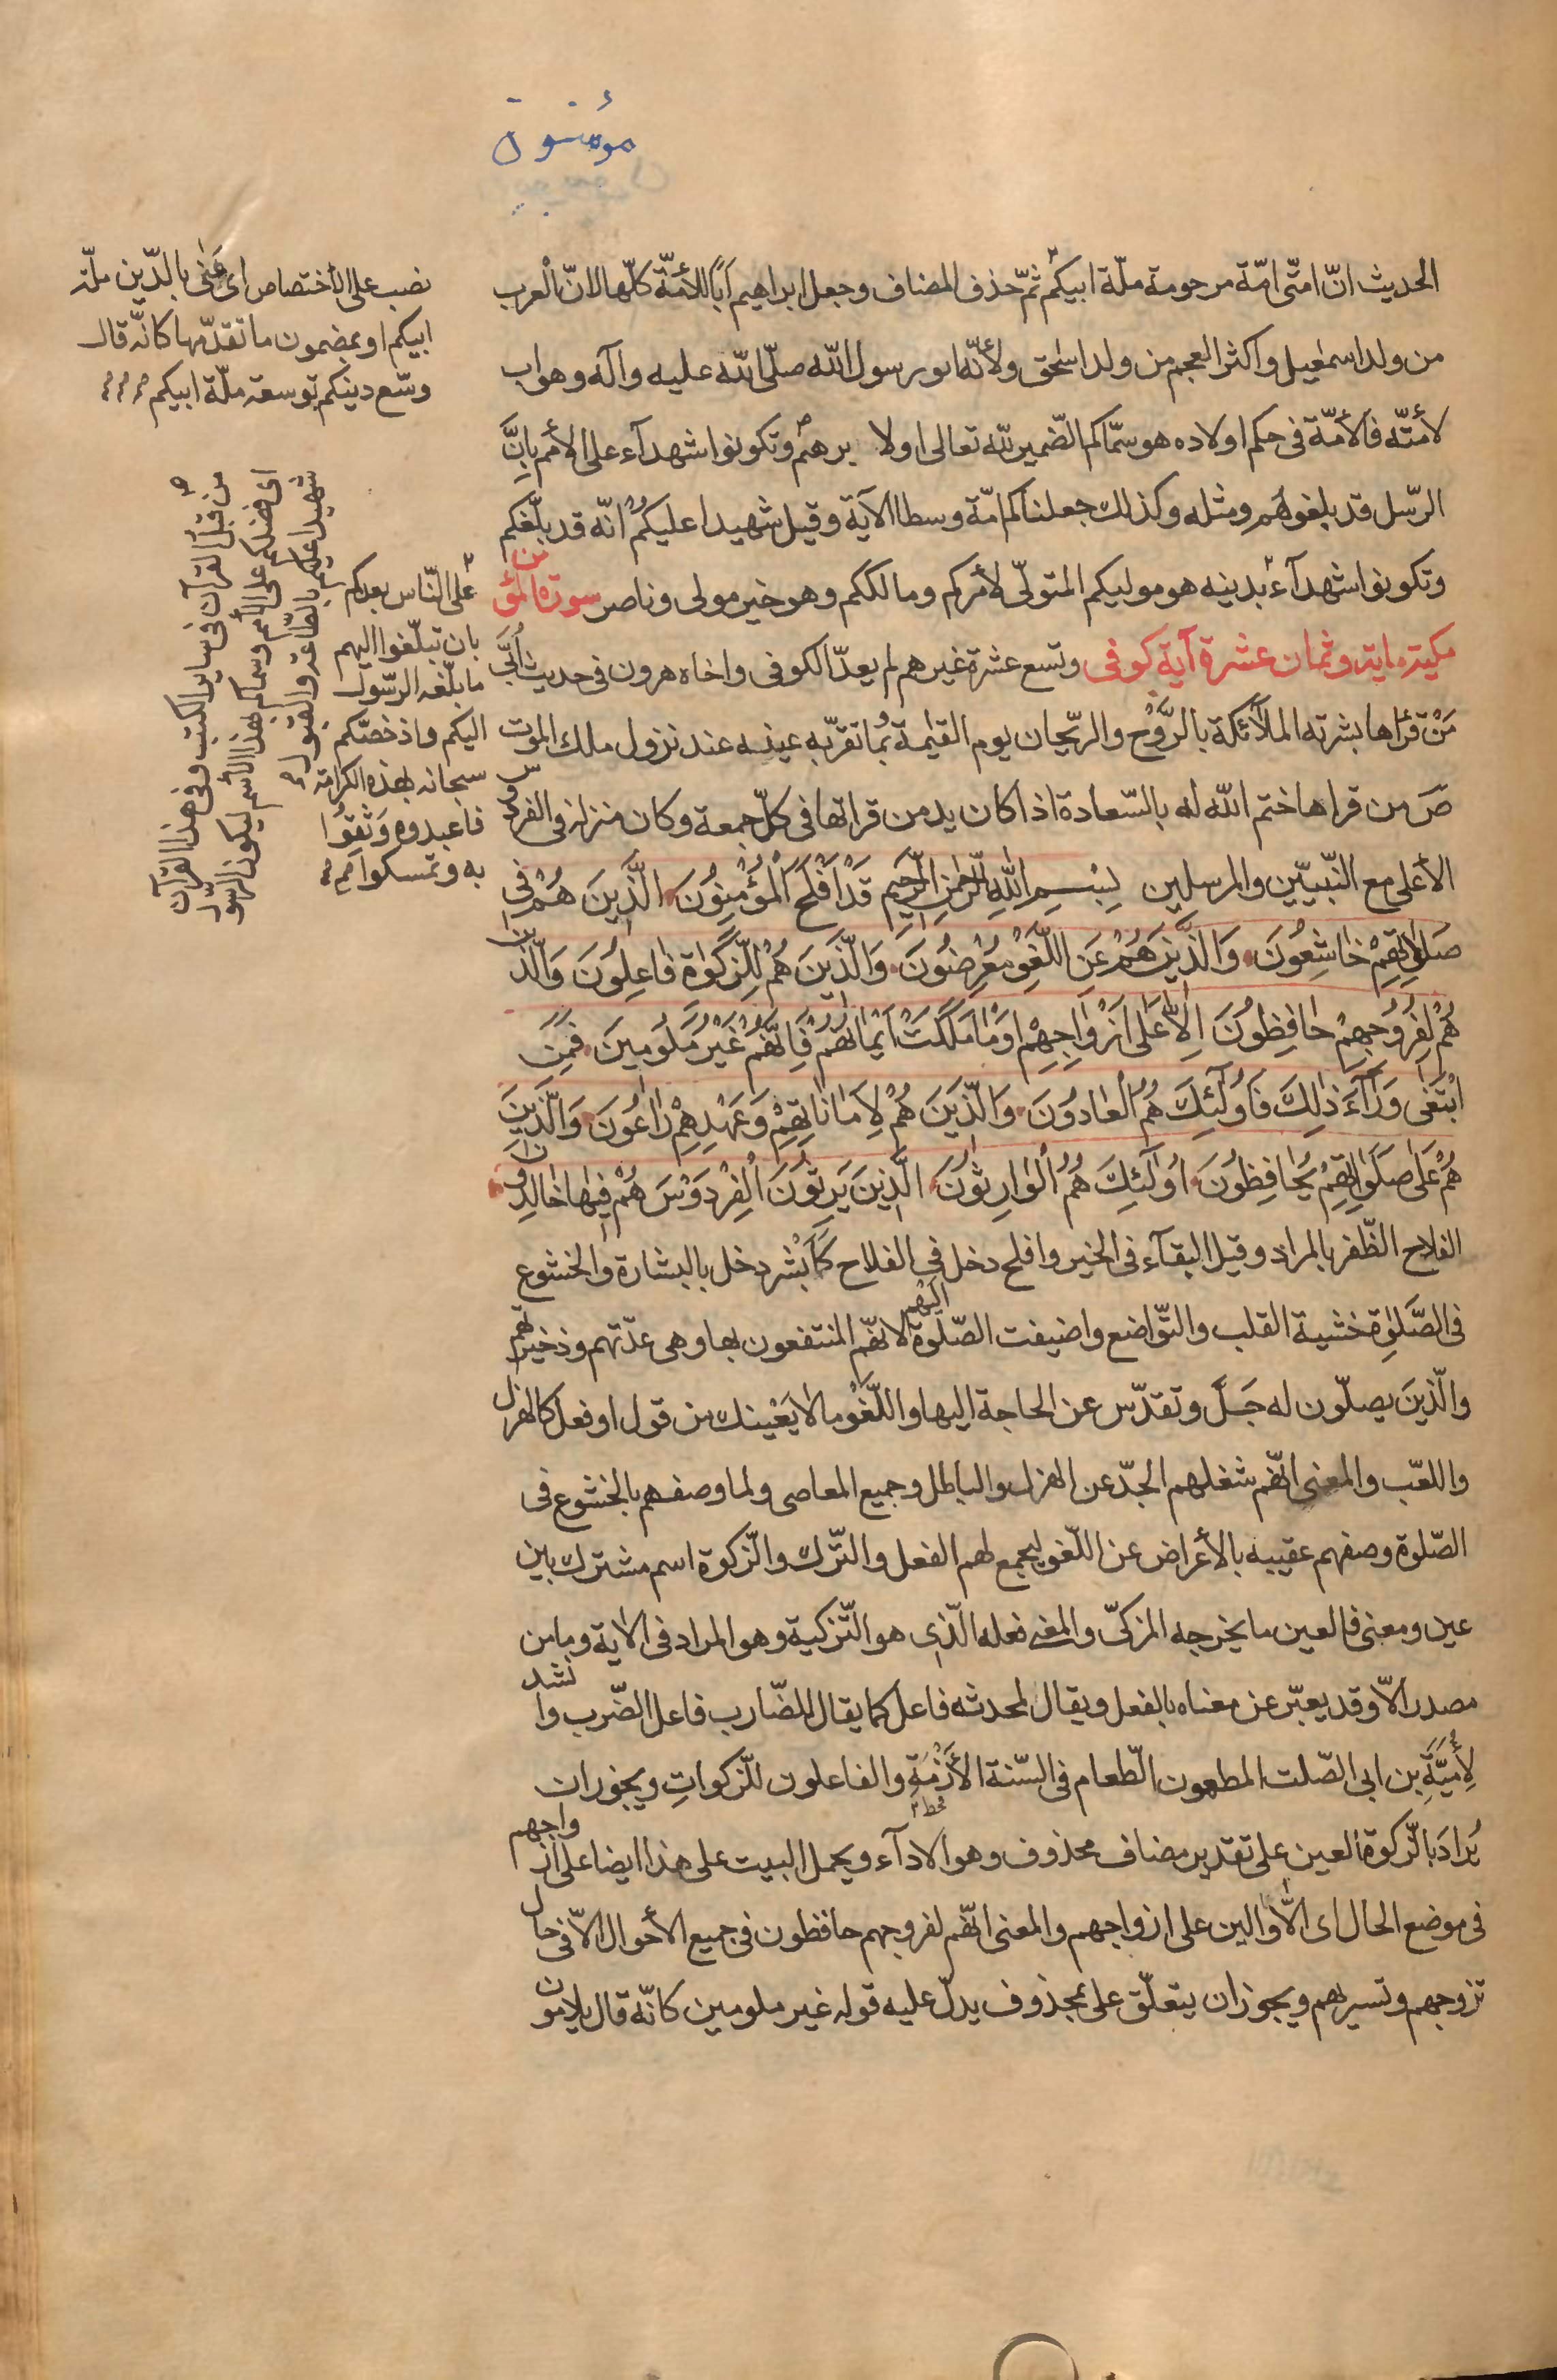 مؤمنون
الحديث انّ امّتى امّة مرحومة ملّة ابيكم ثمّ حذف المضاف وجعل ابراهيم اَبًا للأمّة كلّها لانّ العرب
من ولد اسمٰعيل واكثر العجم من ولد اسحٰق ولأنّه ابو رسول الله صلّى الله عليه وآله وهو اب
لأمّته فالأمّة فى حكم اولاده هو سمّاكم الضّمير لله تعالى او لا برهيم وتكونوا شهدآء على الأمم بانَّ
الرّسل قد بلغوهم ومثله وكذلك جعلناكم امّة وسطا الآية وقيل شهيدا عليكم انّه قد بلّغكم
وتكونوا شهدآء بدينه هو موليكم المتولّى لأمركم ومالككم وهو خير مولى وناصر سورة المؤمن
مكيته ماية وثمان عشرة آية كوفى وتسع عشرة غيرهم لم يعدّ الكوفى واخاه هرون فى حديث اُبَىّ
مَنْ قرأها بشرته الملآئكة بالرَّوْح والرّيحان يوم القيٰمة بما تقرّ به عينه عند نزول ملك الموت
صَ من قراها ختم الله له بالسّعادة اذا كان يدمن قراتها فى كلّ جمعة وكان منزله فى الفردوس
الأعلى مع النّبيّين والمرسلين بِسْمِ اللهِ الرَّحْمٰنِ الرَّحيمِ قَدْ اَفْلَحَ الْمُؤْمِنُونَ الَّذينَ هُمْ فى
صَلٰوتِهِمْ خاشِعُونَ وَالَّذينَ هُمْ عَنِ اللَّغْوِ مُعْرِضُونَ وَالَّذينَ هُمْ لِلزَّكٰوةِ فاعِلُونَ وَالَّذينَ
هُمْ لِفُرُوجِهِمْ حافِظُونَ اِلّا عَلى اَزْواجِهِمْ اَوْ ما مَلَكَتْ اَيْمانُهُمْ فَاِنَّهُمْ غَيْرُ مَلُومينَ فَمَنِ
ابْتَغى وَرآءَ ذٰلِكَ فَاُولٰٓئِكَ هُمُ الْعادُونَ وَالَّذينَ هُمْ لِاَماناتِهِمْ وَعَهْدِهِمْ راعُونَ وَالَّذينَ
هُمْ عَلى صَلَواتِهِمْ يُحافِظُونَ اُولٰٓئِكَ هُمُ الْوارِثُونَ الَّذينَ يَرِثُونَ الْفِرْدَوْسَ هُمْ فيها خالِدُونَ
الفلاح الظّفر بالمراد وقيل البقآء فى الخير وافلح دخل فى الفلاح كأبشر دخل بالبشارة والخشوع
فى الصَّلٰوة خشية القلب والتّواضع واضيفت الصّلوة اليهم لانهّم المنتفعون بها وهى عدّتهم وذخيرتهم
والّذينَ يصلّون له جَلَّ وتقدّس عن الحاجة اليها واللّغْو مالا يَعْنيك من قول او فعل كالهزل
واللعّب والمعنى انّهم شغلهم الجدّ عن الهزل والباطل وجميع المعاصى ولما وصفهم بالخشوع فى
الصّلوة وصفهم عقيبه بالأعراض عن اللّغو ليجمع لهم الفعل والتّرك والزّكوة اسم مشترك بين
عين ومعنى فالعين ما يخرجه المزكىّ والمعنى فعله الّذى هو التّزكية وهو المراد فى الاٰية وما من
مصدر الاّ وقد يعبّر عن معناه بالفعل ويقال لمحدثه فاعل كما يقال للضّارب فاعل الضّرب وانشد
لِأُمَيَّةِ بن ابى الصّلت المطعمون الطّعام فى السّنة الأَزْمَةِ والفاعلون للزّكواتِ ويجوز ان
قحط
يُرادَ بالزّكوة العين على تقدير مضاف محذوف وهو الادآء ويحمل البيت على هذا ايضا على ازواجهم
فى موضع الحال اى الاّ والين على ازواجهم والمعنى انّهم لفروجهم حافظون فى جميع الأحوال الاّ فى حال
تزوجهم وتسريهم ويجوز ان يتعلّق على بمحذوف يدلّ عليه قوله غير ملومين كانّه قال يلامون
نصب على الاختصاص اى عَنٰى بالدّين ملّة
ابيكم او بمضمون ما تقدّمها كانّه قال
وسّع دينكم توسعة ملّة ابيكم
من قبل القرآن فى ساير الكتب وفى هذا القرآن
اى فضلكم على الأمم وسماكم بهذا الأسم ليكون الرّسول
شهيدا عليكم بالطّاعة والقبول
على النّاس بعدكم
بان تبلّغوا اليهم
ما بلّغه الرّسول
اليكم واذ خصّكم
سبحانه بهذه الكرامة
فاعبدوه وَثِقُوا
به وتمسكوا